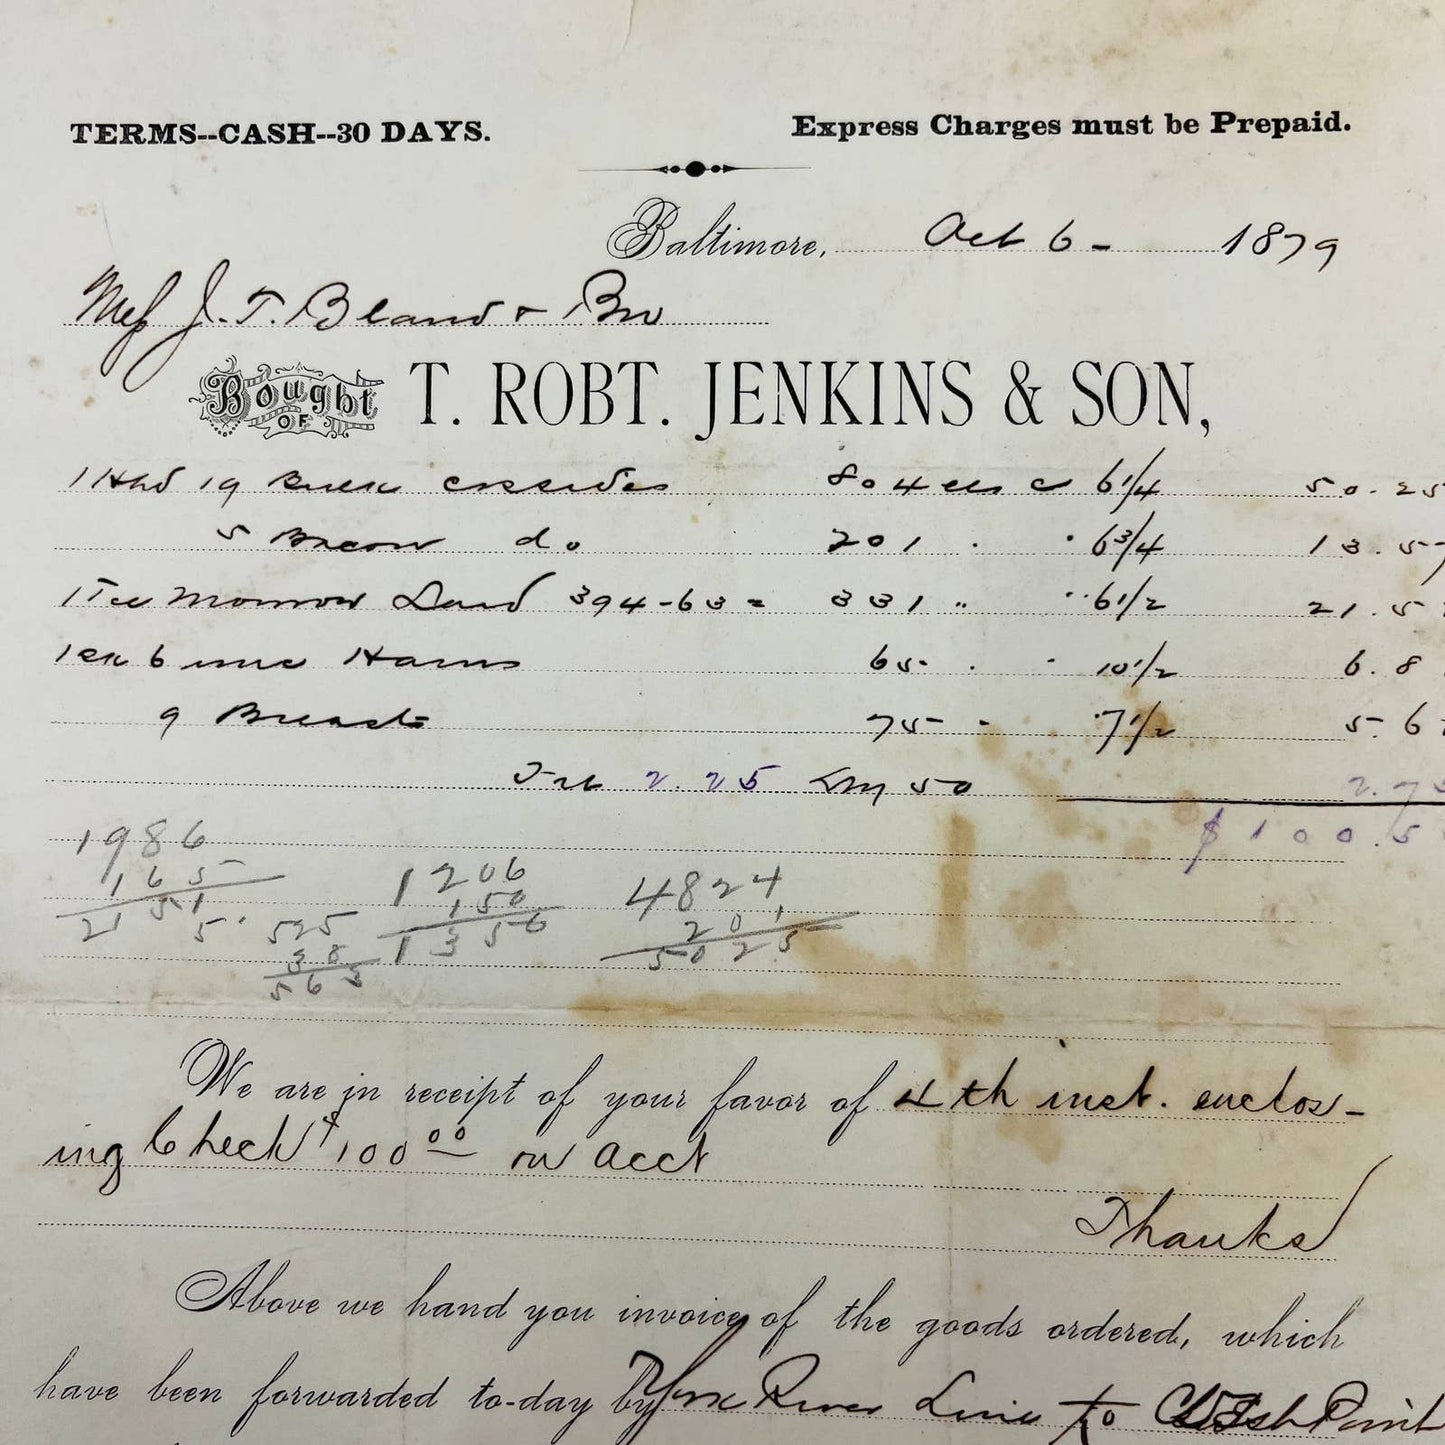 TERMS--CASH--30 DAYS. Express Charges must be Prepaid.
Baltimore, Oct 6 - 1879
Mess J. T. Bland + Bro
Bought OF T. ROBT. JENKINS & SON,
1 Hhd 19 Bulk 804 6 1/4 50.25
5 Bacon do 201 . . 6 3/4 13.57
1 Tce Lard 394-63 = 331 " " 6 1/2 21.5
6 Hams 65 . . 10 1/2 6.8
9 Breasts 75 - . 7 1/2 5.6
2.25 50 2.75
$100.5
1986
165
2151
5.
525
38
563
1206
150
1356
4824
201
5025
We are in receipt of your favor of 4th inst. enclos-
ing Check $100 00 on acct
Thanks
Above we hand you invoice of the goods ordered, which
have been forwarded to-day by York River Line to West Point